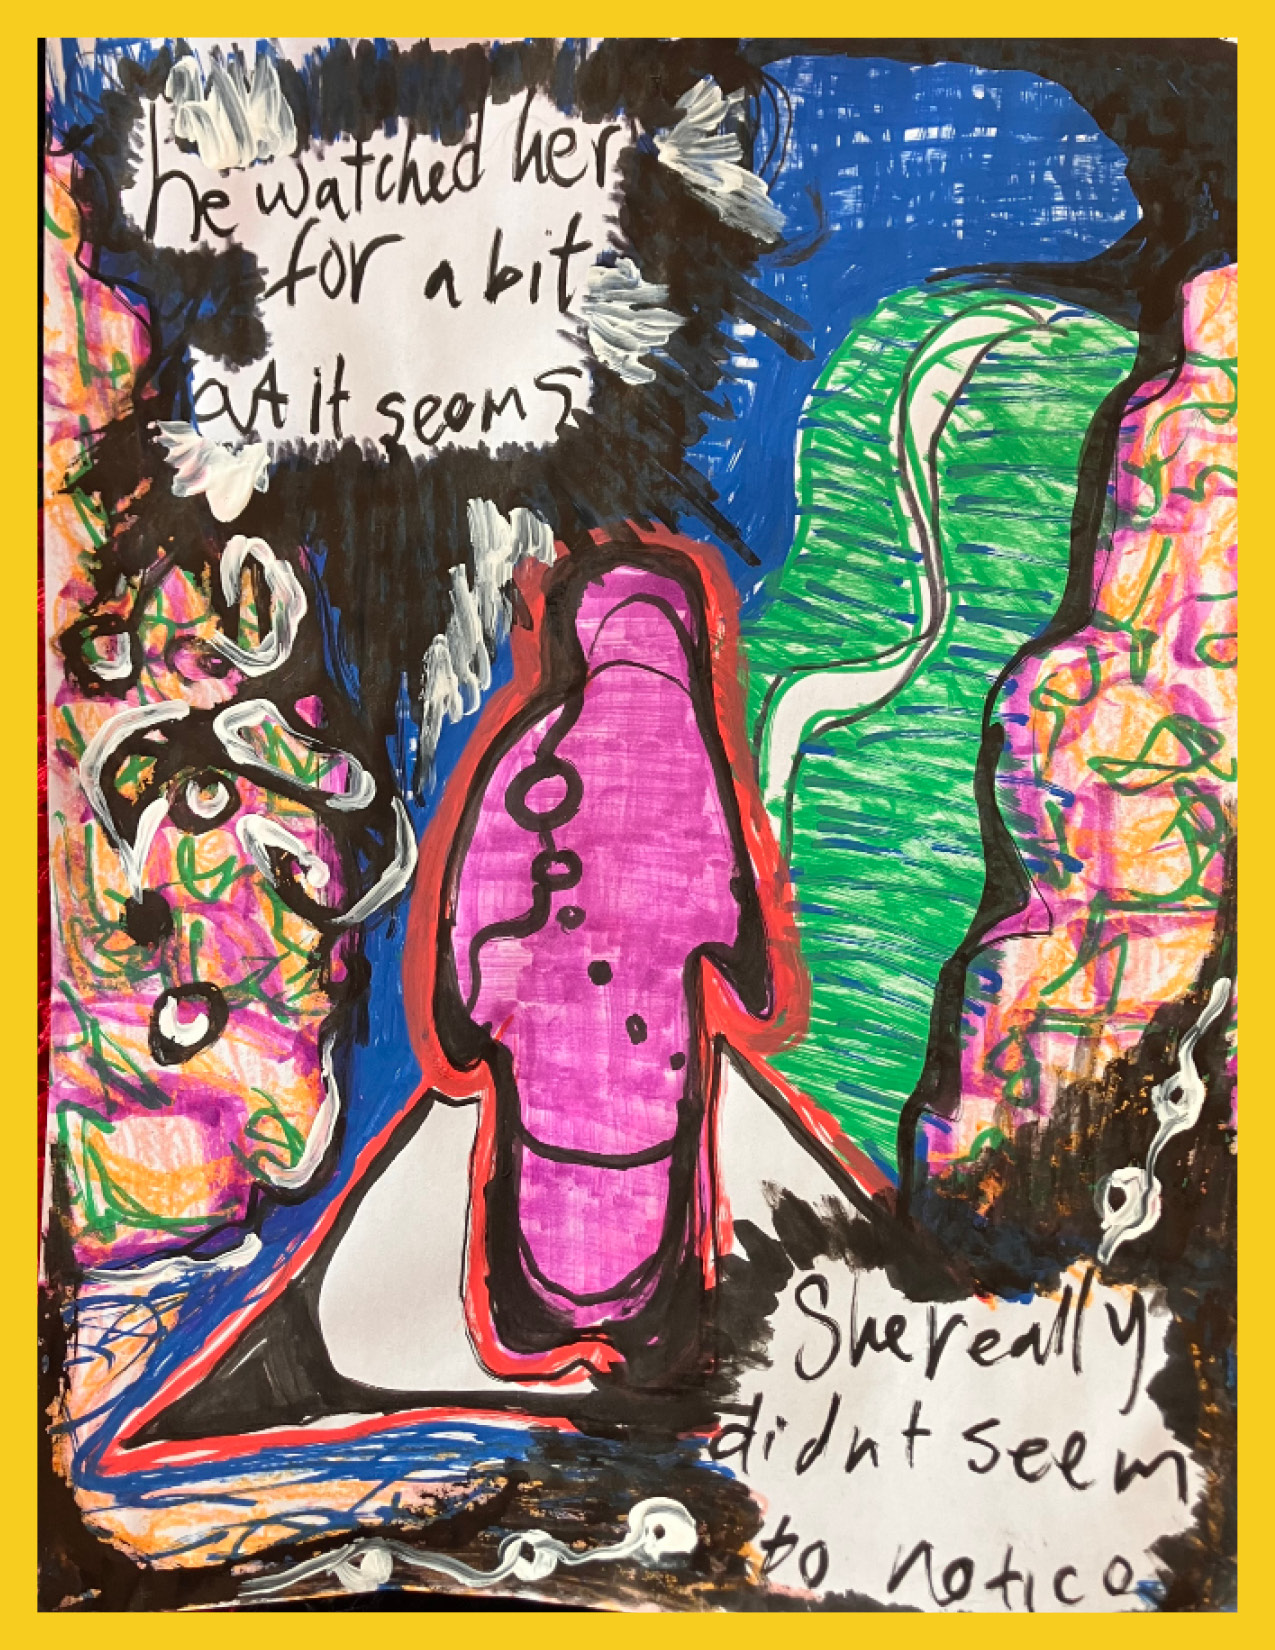 he watched her
for a bit
at it seems
She really
didnt seem
to notice